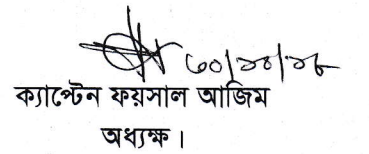 ৩০/১০/১৮
ক্যাপ্টেন ফয়সাল আজিম
অধ্যক্ষ।